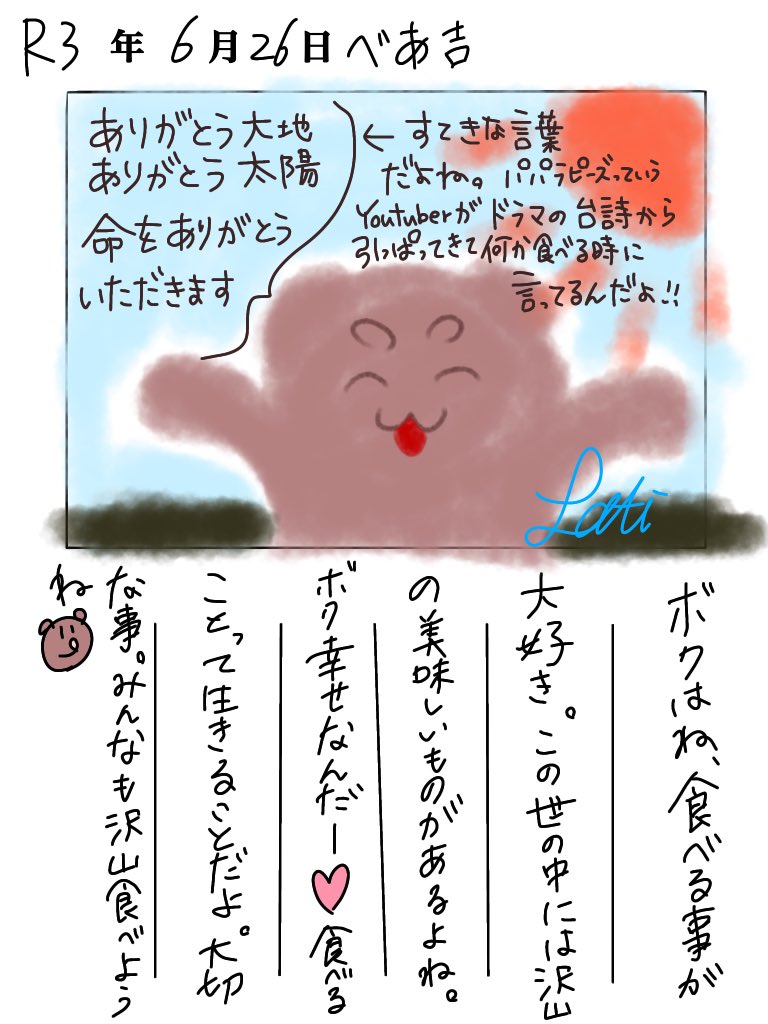 R3年6月26日べあ吉
ありがとう大地
ありがとう太陽
命をありがとう
いただきます
←すてきな言葉
だよね。パパラピーズっていう
Youtuberがドラマの台詩から
引っぱってきて何か食べる時に
言ってるんだよ!!
Lati
ボクはね、食べる事が
大好き。この世の中には沢山
の美味しいものがあるよね。
ボク幸せなんだー♥食べる
ことって生きることだよ。大切
な事。みんなも沢山食べよう
ね